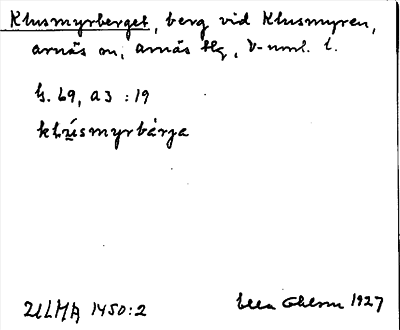 Klusmyrberget, berg vid Klusmyren,
arnäs sn, arnäs tlg, V-nml. l.
b. 69, a3 : 19
klusmyrbärja
ULMA 1450:2 1927